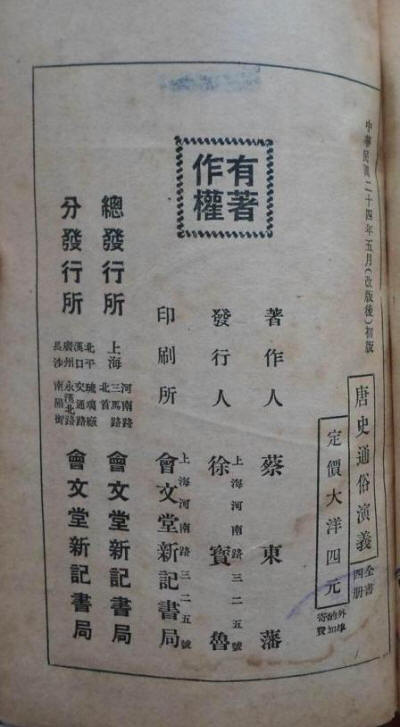 中華民國二十四年五月(改版後)初版
唐史通俗演義
全書四册
定價大洋四元
外埠酌加寄費
有著作權
著作人 蔡東藩
發行人 徐寶魯
上海河南路三二五號
印刷所 會文堂新記書局
上海河南路三二五號
總發行所 上海 河南路三馬路北首 會文堂新記書局
分發行所 北平 琉璃廠 漢口 交通路 廣州 永漢北路 長沙 南陽街 會文堂新記書局